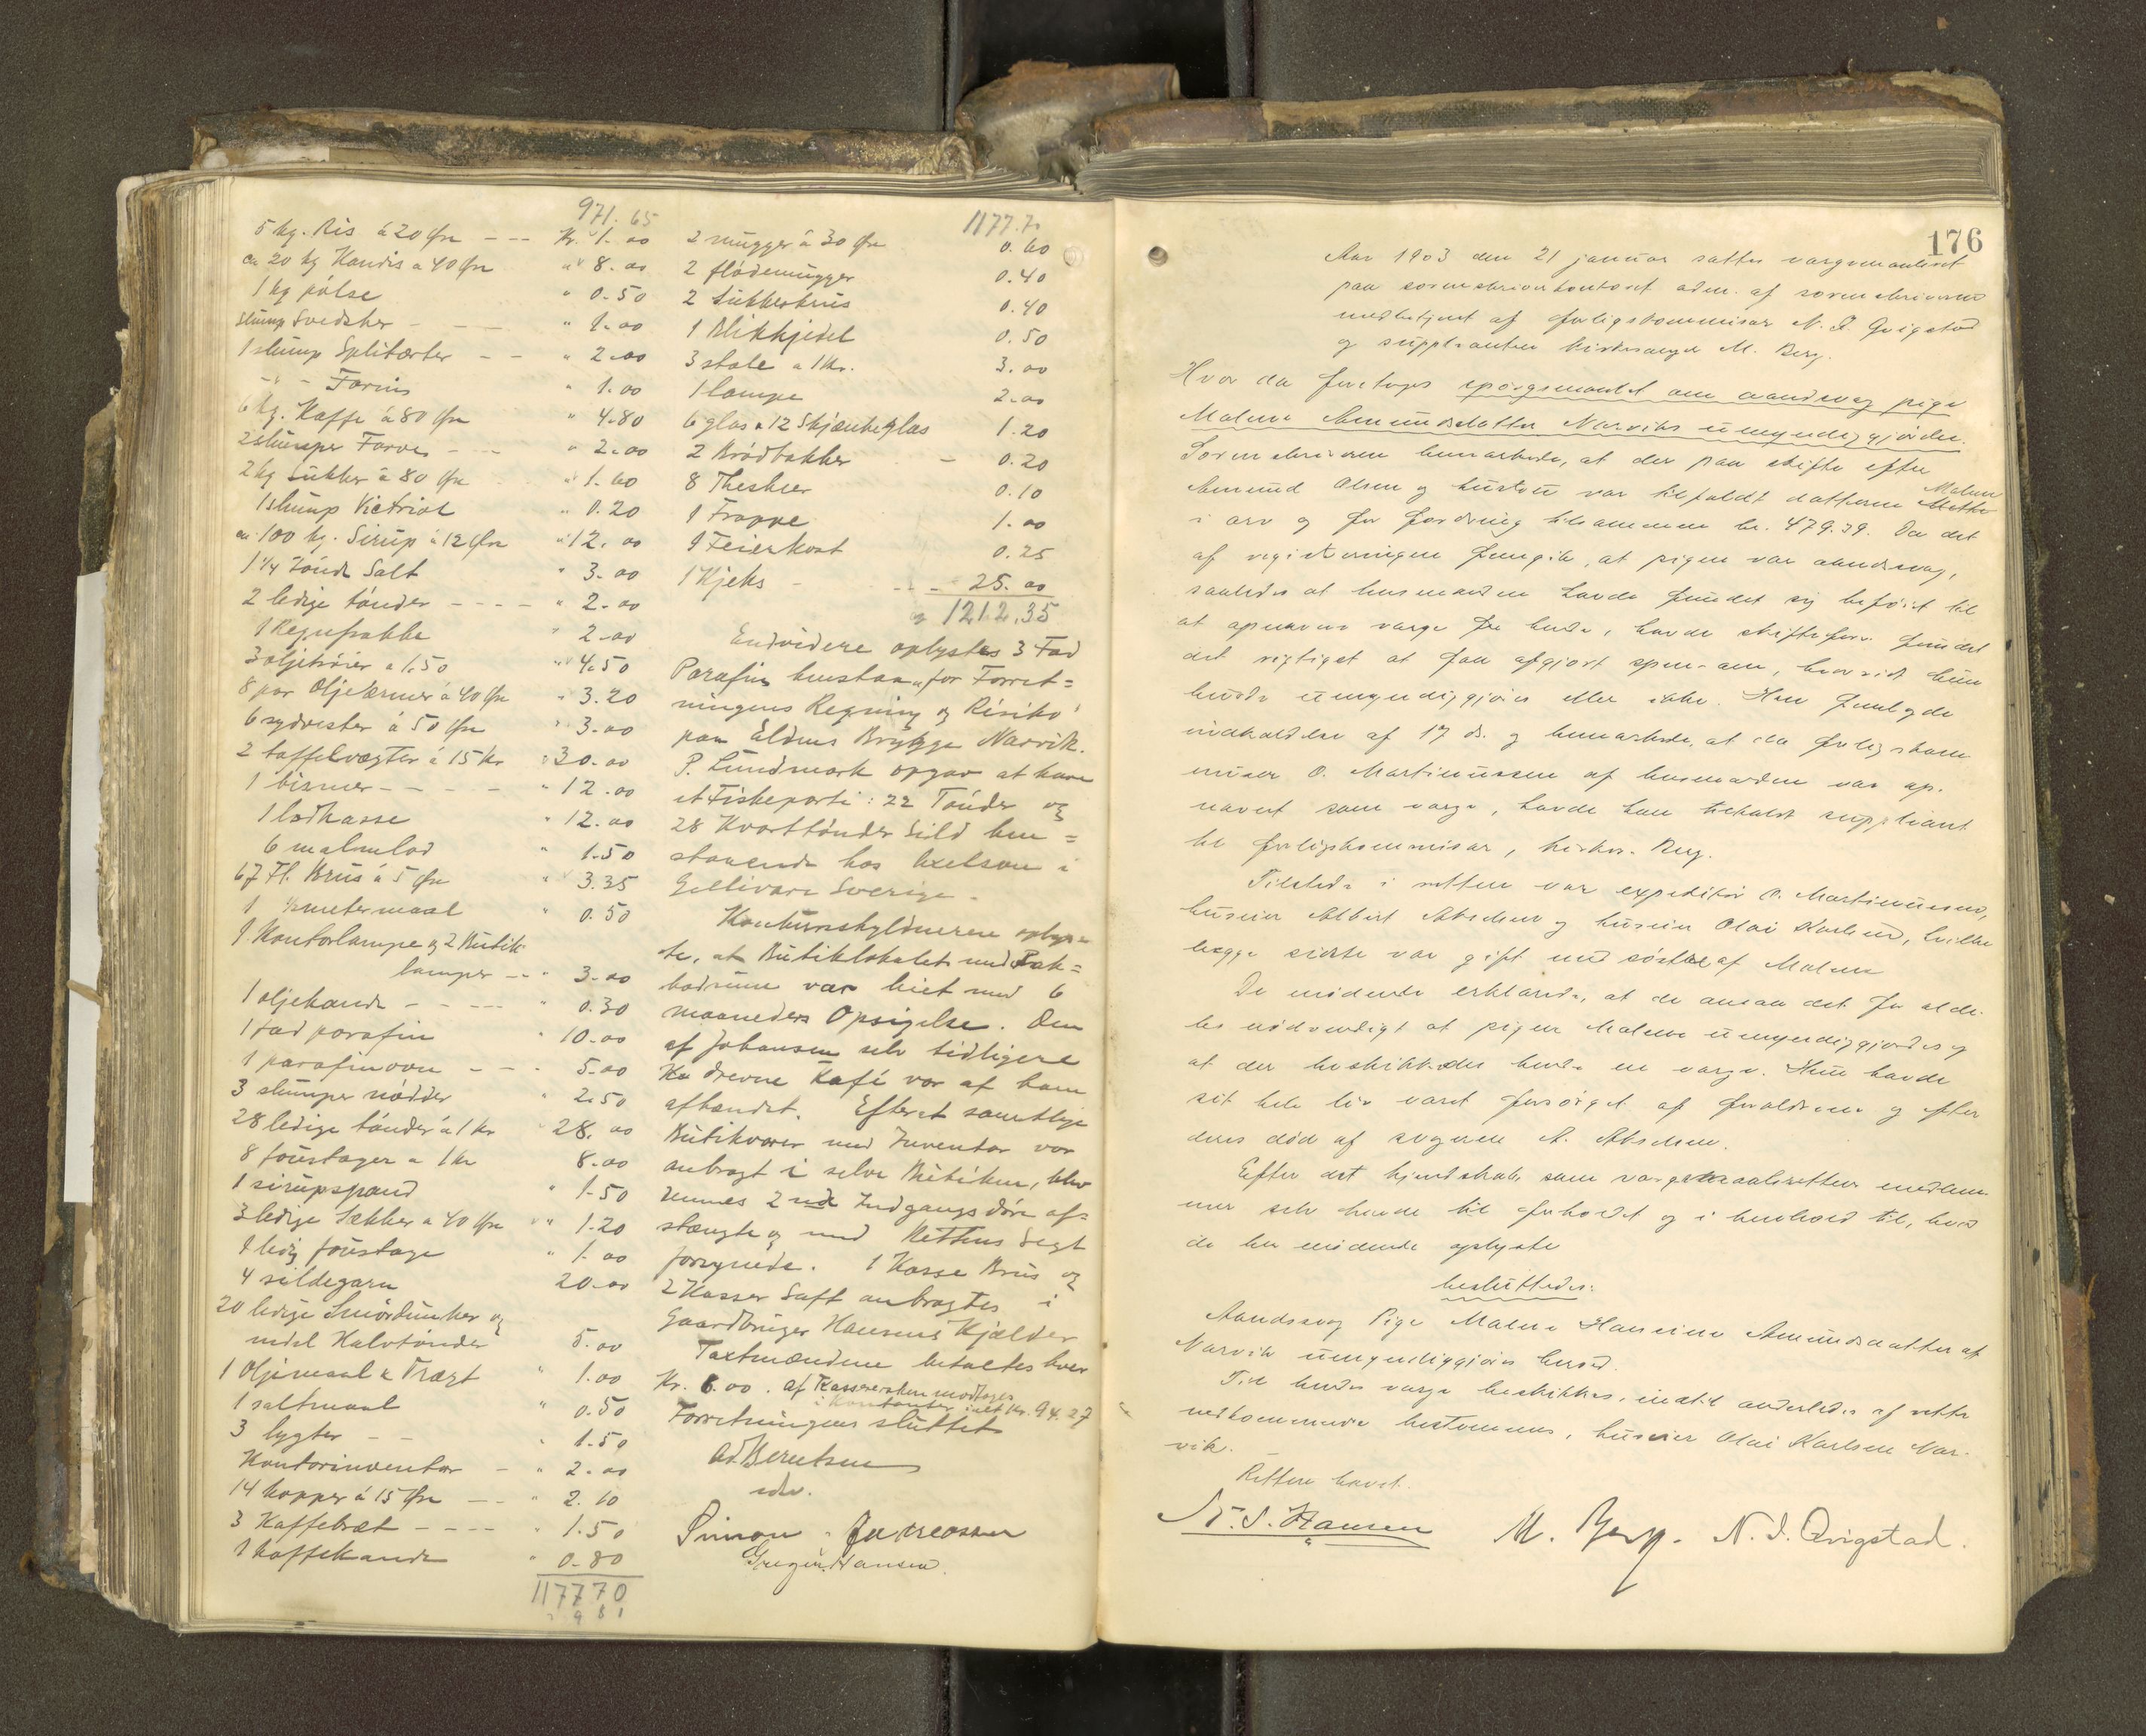 971.65
5 kg. Ris à 20 Øre --- Kr. 1.00
ca 20 kg Kandis a 40 Øre " 8.00
1 kg pølse " 0.50
Slump Svedsker - - - " 1.00
1 slump Splitærter - - " 2.00
-"- Farin " 1.00
6 kg. Kaffe à 80 Øre " 4.80
2 slumper Farve - - " 2.00
2 kg Sukker à 80 Øre " 1.60
1 slump Victriol " 0.20
ca 100 kg. Sirup à 12 Øre " 12.00
1 1/4 Tønde Salt " 3.00
2 ledige tønder - - - - " 2.00
1 Regnfrakke " 2.00
3 oljetrøier a 1.50 " 4.50
8 par Oljeærmer à 40 Øre " 3.20
6 sydvester à 50 Øre " 3.00
2 taffelvægter à 15 Kr " 30.00
1 bismer - - - - " 12.00
1 lodkasse " 12.00
6 malmlod " 1.50
67 Fl. Brus à 5 Øre " 3.35
1 1/2 metermaal " 0.50
1 Kontorlampe og 2 Butik-
lamper - - " 3.00
1 oljekande - - - - " 0.30
1 fad parafin " 10.00
1 parafinovn - - - 5.00
3 slumper nødder " 2.50
28 ledige tønder à 1 Kr " 28.00
8 foustager a 1 Kr 8.00
1 sirupspand " 1.50
3 ledige Sækker a 40 Øre " 1.20
1 ledig foustage " 1.00
4 sildegarn 20.00
20 ledige Smørdunker og
endel Halvtønder 5.00
1 Oljemaal & Tragt " 1.00
1 saltmaal " 0.50
3 lygter - - " 1.50
Kontorinventar - " 2.00
14 kopper à 15 Øre - - " 2.10
3 Kaffebræt - - - - " 1.50
1 kaffekande " 0.80
1177 70
1177.70
2 mugger à 30 Øre 0.60
2 flødemugger 0.40
2 Sukkerkrus 0.40
1 Blikkjedel 0.50
3 stole a 1 Kr. 3.00
1 lampe 2.00
6 glas & 12 Skjænkeglas 1.20
2 Brødbakker - 0.20
8 Theskeer 0.10
1 Trappe 1.00
1 Feierkost 0.25
1 Kjeks - - - 25.00
1212.35
Endvidere oplystes 3 Fad
Parafin henstaa for Forret=
ningens Regning og Risiko
paa Eldens Brygge Narvik.
P. Lundmark opgav at have
et Fiskeparti: 22 Tønder og
28 Kvarttønder Sild hen=
staaende hos Axelson i
Gellivare Sverige.
Konkursskyldneren oplys=
te, at Butiklokalet med Pak=
bodrum var leiet med 6
maaneders Opsigelse. Den
af Johansen selv tidligere
drevne Kafé var af ham
afhændet. Efterat samtlige
Butikvarer med Inventar var
anbragt i selve Butiken, blev
dennes 2nde Indgangsdøre af=
stængte og med Rettens Segl
forsynede. 1 Kasse Brus og
2 Kasser Saft anbragtes i
Gaardbruger Hansens Kjælder
Taxtmændene betaltes hver
Kr. 6.00. af Kassereren modtoges
i Kontanter ialt Kr. 94.27
Forretningen sluttet
Ad. Berntsen
edv.
Simon Andreassen
Gregers Hansen.
176
Aar 1903 den 21 januar sattes vergemaalsret
paa sorenskriverkontoret adm. af sorenskriveren
medbetjent af forligskommisær N. J. Qvigstad
og suppleanten kirkesanger M. Berg.
Hvor da foretoges spørgsmaalet om aandssvag pige
Malene Amundsdatter Narviks umyndiggjørelse.
Sorenskriveren bemærkede, at der paa skifte efter
Amund Olsen og hustru var tilfaldt datteren Malene
i arv og for fordring tilsammen kr. 479.39. Da det
af registreringen fremgik, at pigen var aandssvag,
saaledes at lensmanden havde fundet sig beføiet til
at opnævne verge for hende, havde skifteforv. fundet
det rigtigst at faa afgjort spm. om, hvorvidt hun
burde umyndiggjøres eller ikke. Han fremlagde
indkaldelse af 17 ds. og bemærkede, at da forligskom
misær O. Martinussen af lensmanden var op-
nævnt som verge, havde han tilkaldt suppleant
til forligskommisær, kirkes. Berg.
Tilstede i retten var expeditør O. Martinussen,
huseier Albert Abelsen og huseier Olai Karlsen, hvilke
begge sidste var gift med søstre af Malene
De mødende erklærede, at de ansaa det for alde-
les nødvendigt at pigen Malene umyndiggjordes og
at der beskikkedes hende en verge. Hun havde
sit hele liv været forsørget af forældrene og efter
deres død af svogeren A. Abelsen.
Efter det kjendskab som vergemaalsrettens medlem-
mer selv havde til forholdet og i henhold til, hvad
de her mødende oplyste
besluttedes:
Aandssvag Pige Malene Hansine Amundsdatter af
Narvik umyndiggjøres herved.
Til hendes verge beskikkes, indtil anderledes af rette
vedkommende bestemmes, huseier Olai Karlsen Nar-
vik.
Retten hævet.
N. S. Hansen M. Berg. N. J. Qvigstad.